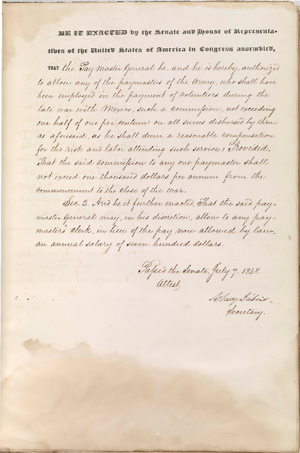 BE IT ENACTED by the Senate and House of Representa-
tives of the United States of America in Congress assembled,
THAT the Pay Master General be, and he is hereby, authorized
to allow any of the paymasters of the Army, who shall have
been employed in the payment of volunteers during the
late war with Mexico, such a commission, not exceeding
one half of one per centum on all sums disbursed by them
as aforesaid, as he shall deem a reasonable compensation
for the risk and labor attending such service: Provided,
That the said commission to any one paymaster shall
not exceed one thousand dollars per annum from the
commencement to the close of the war.
Sec. 2. And be it further enacted, That the said pay-
master General may, in his discretion, allow to any pay-
master's clerk, in lieu of the pay now allowed by law,
an annual salary of seven hundred dollars.
Passed the Senate, July 7. 1848
Attest
Asbury Dickins
Secretary.